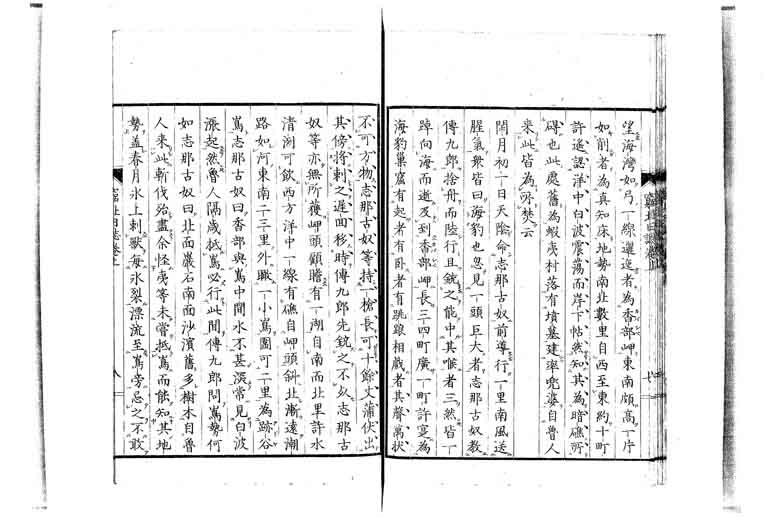 望海灣如弓一線邐迤者為香部岬東南頗高一片
如削者為真知床地勢南北數里自西至東約十町
許遙認洋中白波震蕩而岸下帖然知其為暗礁所
碍也此處舊為蝦夷村落有墳墓建率兜婆自魯人
來此皆為所焚云
閏月初一日天陰命志那古奴前導行一里南風送
腥氣眾皆曰海豹也忽見一頭巨大者志那古奴教
傳九郎捨舟而陸行且銃之能中其喉者三然皆一
踔向海而逝及到香部岬長三四町廣一町許寔為
海豹巢窟有起者有臥者有跳踉相戲者其聲萬狀
不可方物志那古奴等持一槍長可十餘丈蒲伏出
其傍將刺之遲回移時傳九郎先銃之不幺志那古
奴等亦無所獲岬頭顧瞻有一湖自南而北里許水
清冽可飲西方洋中一線有礁自岬頭斜北漸遠潮
路如河東南二三里外瞰一小嶌圍可二里為跡谷
嶌志那古奴曰香部與嶌中間水不甚深常見白波
漲起然魯人隔歲抵嶌必行此間傳九郎問嶌勢何
如志那古奴曰北面巖石南面沙濱舊多樹木自魯
人來此斬伐殆盡余怪夷等未嘗抵嶌而能知其地
勢蓋春月氷上刺獸每氷裂漂流至嶌旁忌之不敢
北日誌卷上
八